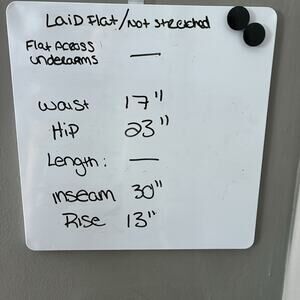 Laid Flat/Not stretched
Flat Across —
underarms
Waist 17"
Hip 23"
Length: —
inseam 30"
Rise 13"